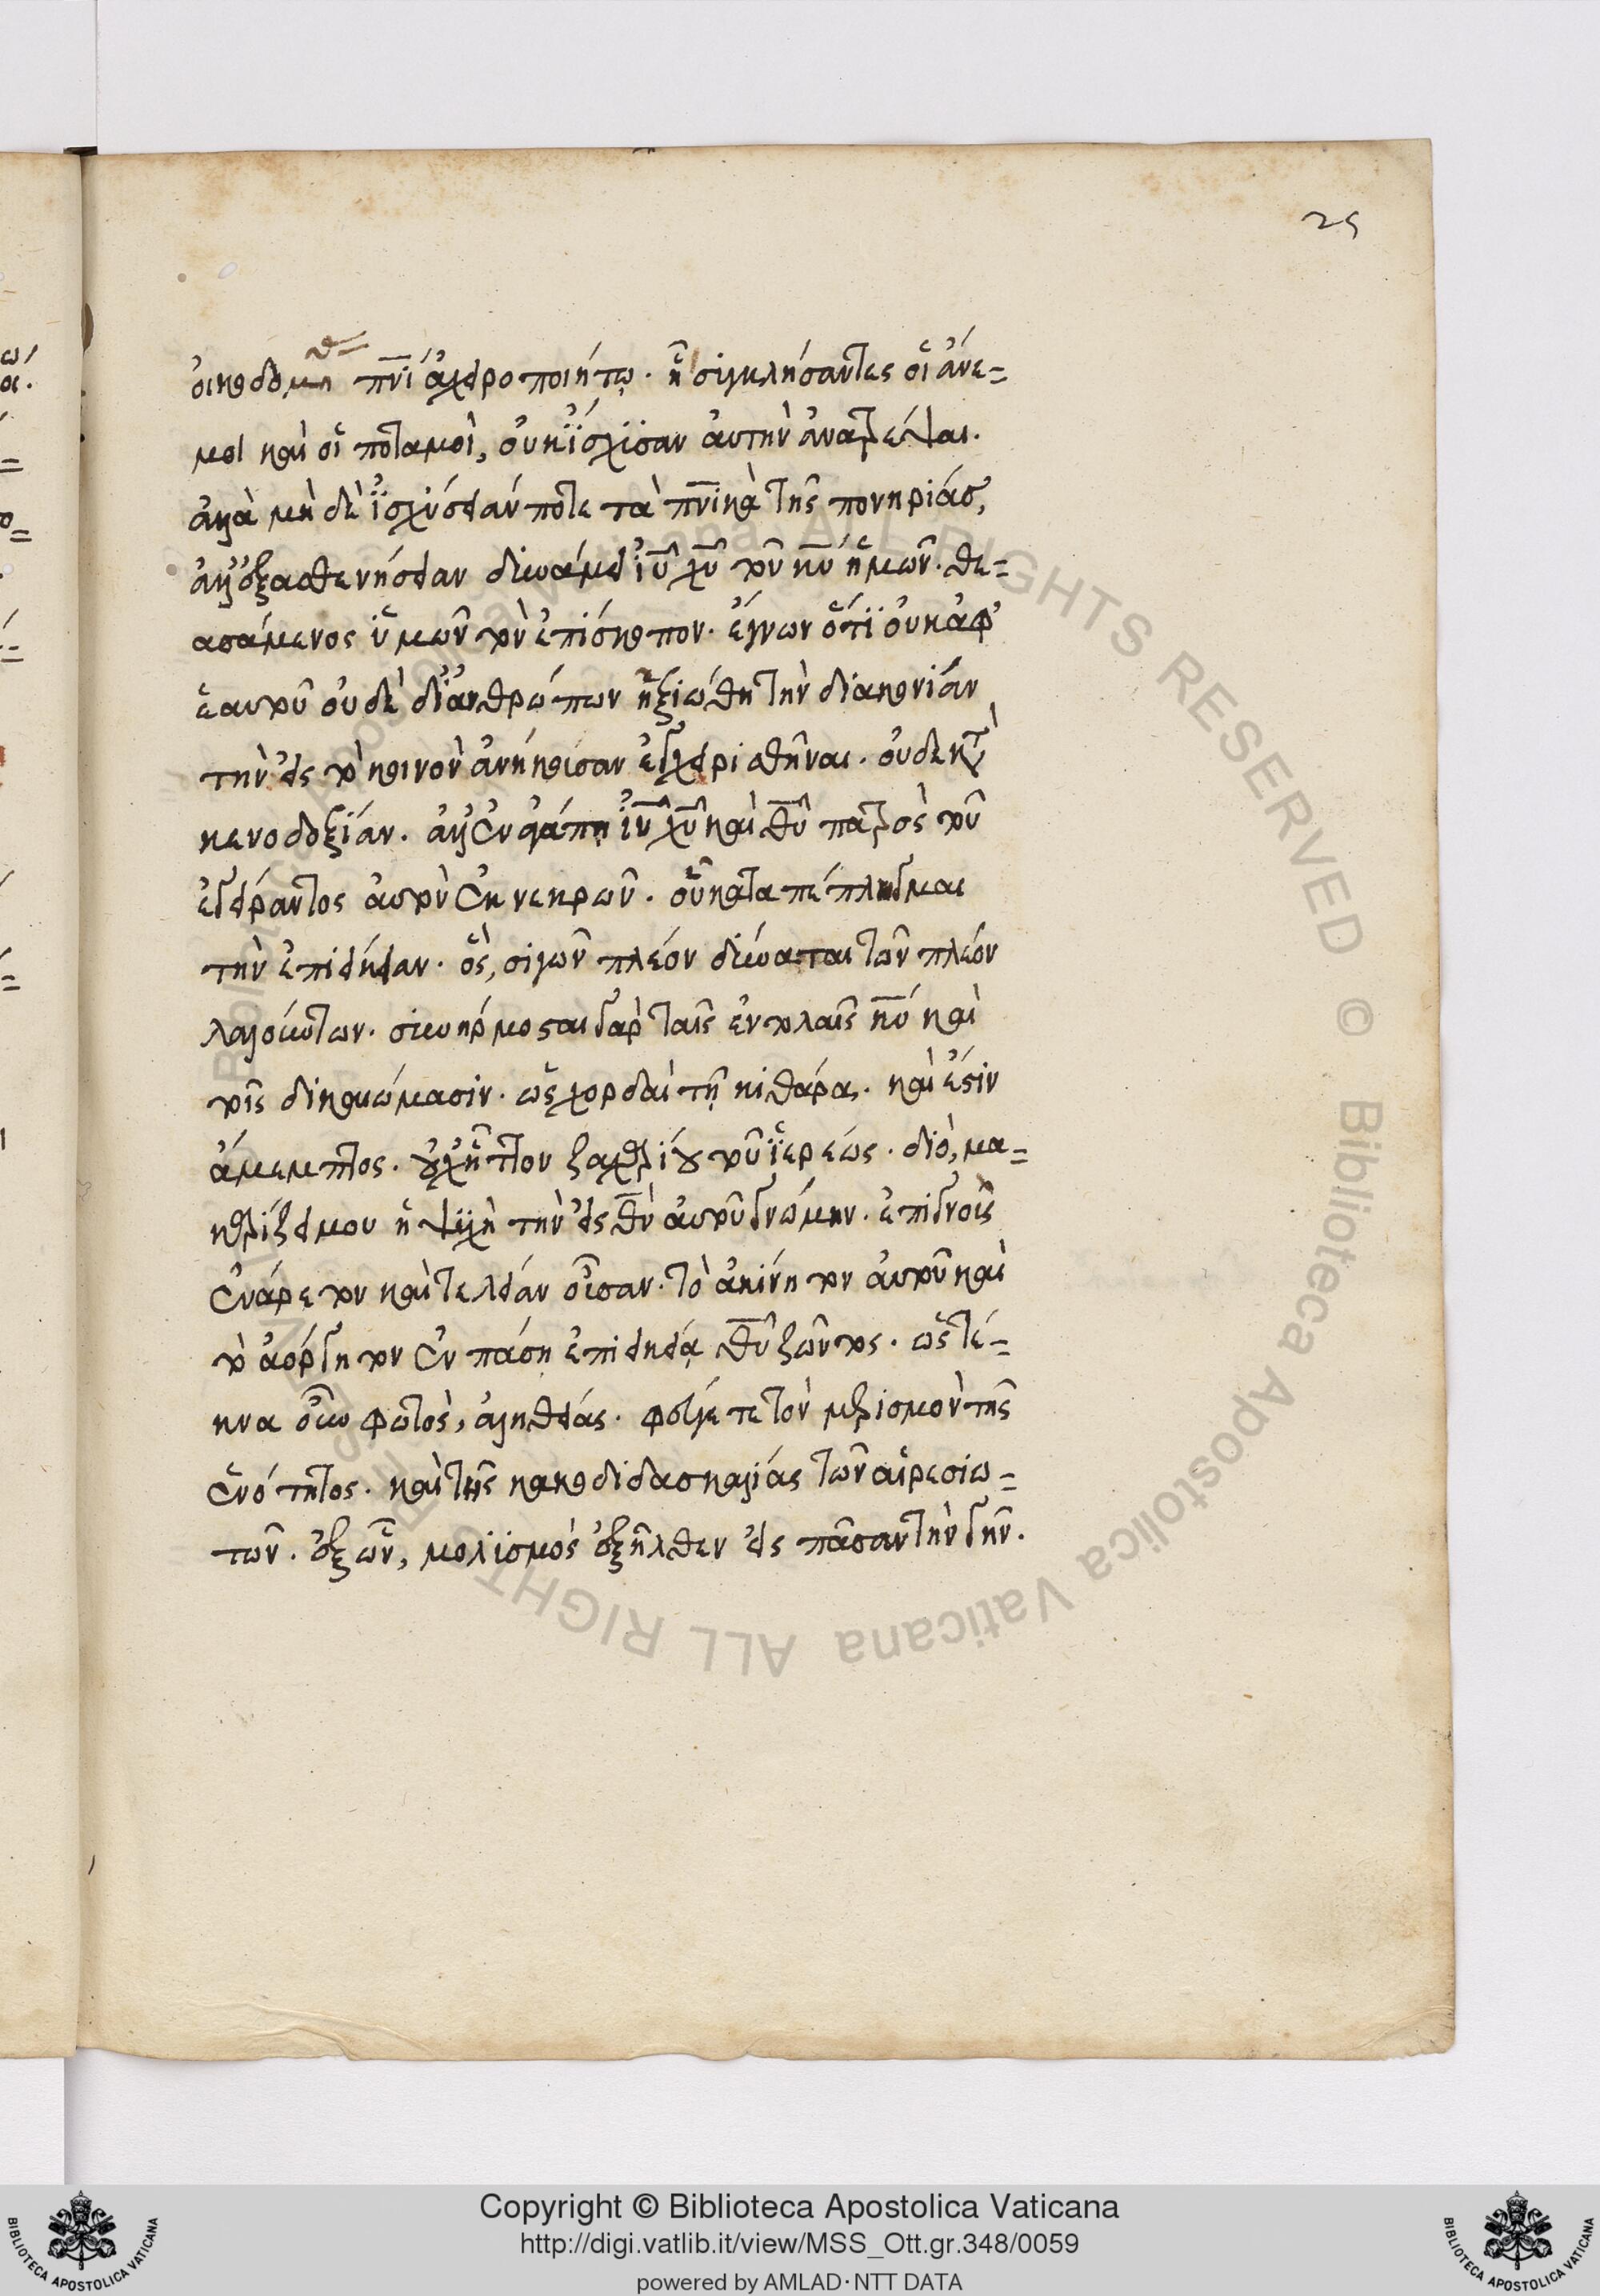 25
οἰκοδομῆ πνι ἀχειροποιήτω. ᾗ συγκλήσαντες οἱ ἄνε=
μοι καὶ οἱ ποταμοὶ, οὐκ ἴσχυσαν αὐτὴν ἀνατρέψαι.
ἀλλὰ μὴ δὲ ἰσχύσειάν ποτε τὰ πνικὰ τῆς πονηρίας,
ἀλλ' ἐξασθενήσειαν δυνάμει ἰυ χυ τοῦ κυ ἡμῶν. θε=
ασάμενος ὑμῶν τὸν ἐπίσκοπον. ἔγνων ὅτι οὐκ ἀφ'
ἑαυτοῦ οὐδὲ δι' ἀνθρώπων ἠξιώθη τὴν διακονίαν
τὴν εἰς τὸ κοινὸν ἀνήκουσαν ἐγχειρισθῆναι. οὐδὲ κατὰ
κενοδοξίαν. ἀλλ' ἐν ἀγάπη ἰυ χυ καὶ θυ πατρὸς τοῦ
ἐγείραντος αὐτὸν ἐκ νεκρῶν. οὗ καταπέπληγμαι
τὴν ἐπιείκειαν. ὃς, σιγῶν πλέον δύναται τῶν πλέον
λαλούντων. συνήρμοσται γὰρ ταῖς ἐντολαῖς κυ καὶ
τοῖς δικαιώμασιν. ὡς χορδαὶ τῆ κιθάρα. καὶ ἔστιν
ἄμεμπτος. οὐχ ἧττον ζαχαρίου τοῦ ἱερέως. διὸ, μα=
καρίζει μου ἡ ψυχὴ τὴν εἰς θν αὐτοῦ γνώμην. ἐπιγνοῦς
ἐνάρετον καὶ τελείαν οὖσαν. τὸ ἀκίνητον αὐτοῦ καὶ
τὸ ἀόργητον ἐν πάση ἐπιεικεία θυ ζῶντος. ὡς τέ=
κνα οὖν φωτὸς, ἀληθείας. φεύγετε τὸν μερισμὸν τῆς
ἑνότητος. καὶ τῆς κακοδιδασκαλίας τῶν αἱρεσιω=
τῶν. ἐξ ὧν, μολυσμὸς ἐξῆλθεν εἰς πᾶσαν τὴν γῆν.
Copyright © Biblioteca Apostolica Vaticana
http://digi.vatlib.it/view/MSS_Ott.gr.348/0059
powered by AMLAD·NTT DATA
BIBLIOTECA APOSTOLICA VATICANA
BIBLIOTECA APOSTOLICA VATICANA
Biblioteca Apostolica Vaticana ALL RIGHTS RESERVED © Biblioteca Apostolica Vaticana ALL RIGHTS RESERVED ©